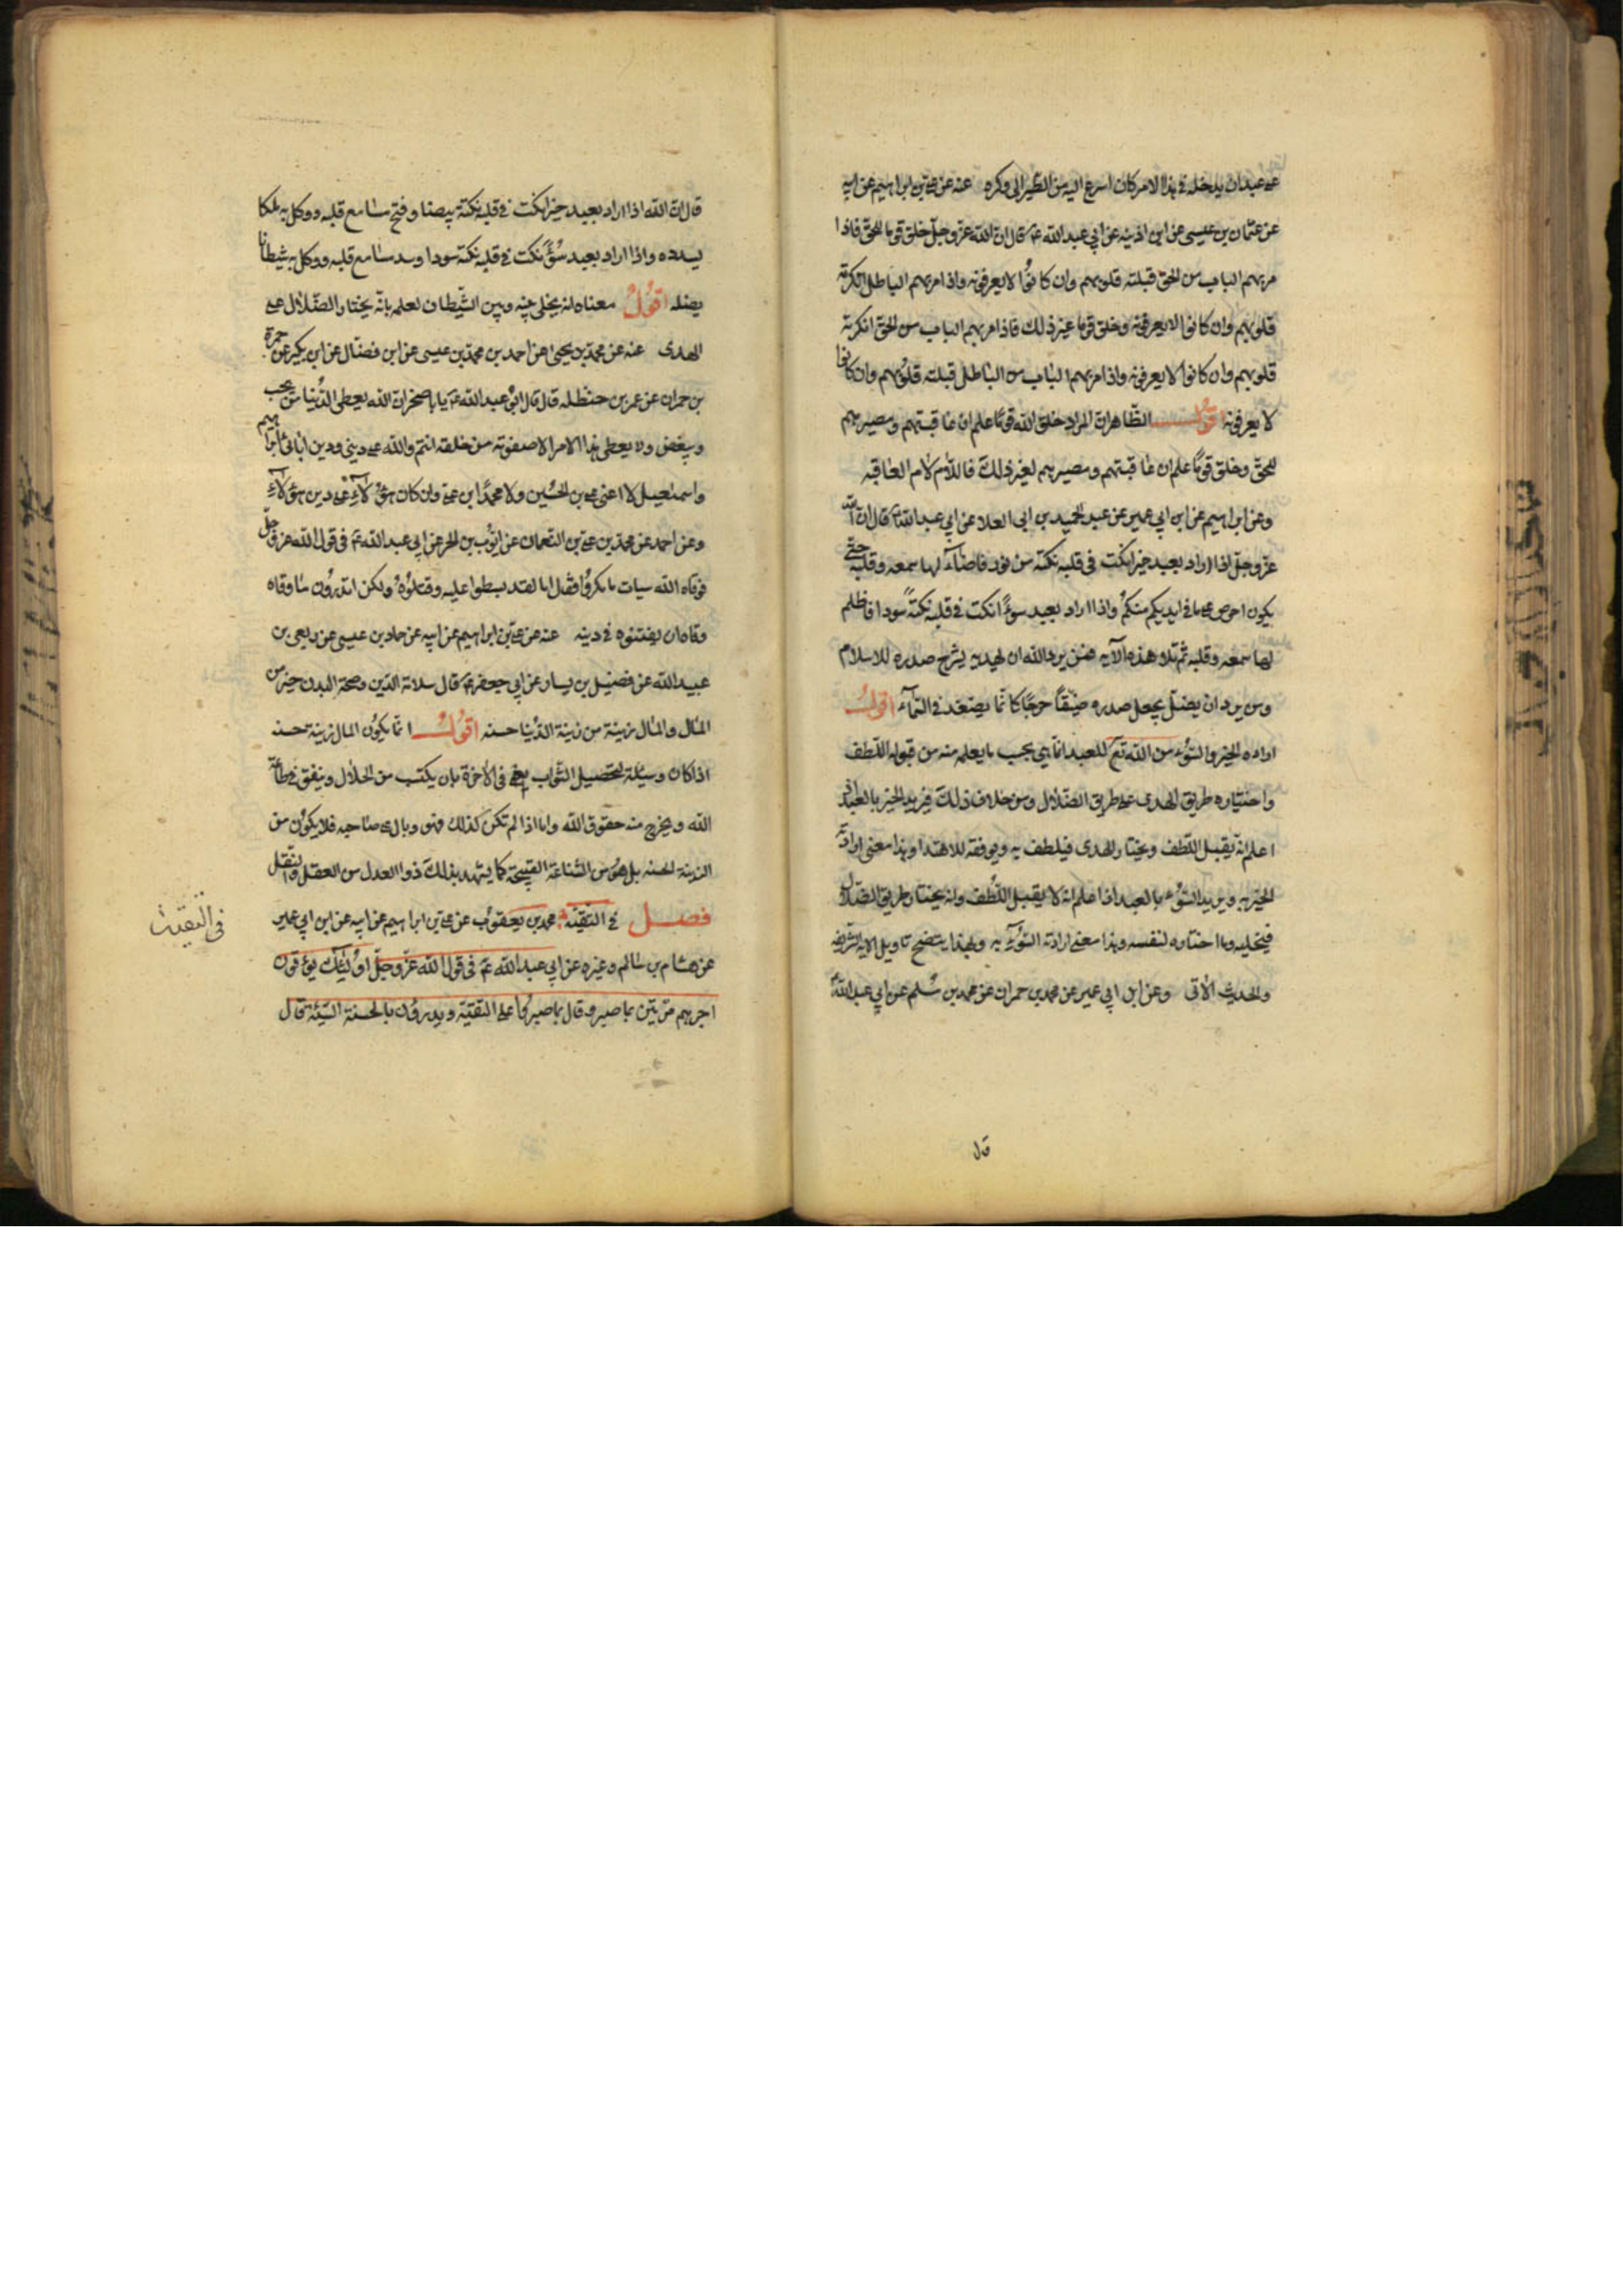 على عبدان يدخله في هذا الامر كان اسرع اليه من الطير الى وكره عنه عن علي بن ابراهيم عن ابيه
عن عثمان بن عيسى عن ابن اذينه عن ابي عبد الله ع قال ان الله عز وجل خلق قوما للحق فاذا
مر بهم الباب من الحق قبلته قلوبهم وان كانوا لا يعرفونه واذا مر بهم الباطل انكرته
قلوبهم وان كانوا لا يعرفونه وخلق قوما غير ذلك فاذا مر بهم الباب من الحق انكرته
قلوبهم وان كانوا لا يعرفونه واذا مر بهم الباب من الباطل قبلته قلوبهم وان كانوا
لا يعرفونه اقول الظاهر ان المراد خلق الله قوما علم ان عاقبتهم ومصيرهم
للحق وخلق قوما علم ان عاقبتهم ومصيرهم لغير ذلك فاللام لام العاقبه
وعن ابراهيم عن ابن ابي عمير عن عبد الحميد بن ابى العلا عن ابي عبد الله ع قال ان الله
عز وجل اذا اراد بعبد خيرا نكت فى قلبه نكتة من نور فاضاء لها سمعه وقلبه حتى
يكون احرص على ما في ايديكم منكم واذا اراد بعبد سوءً انكت في قلبه نكتةً سودا فاظلم
لها سمعه وقلبه ثم تلا هذه الآيه فمن يرد الله ان يهديه يشرح صدره للاسلام
ومن يرد ان يضله يجعل صدره ضيّقاً حرجًا كانّما يصّعّد في السّمآء اقول
اراده الخير والسّوء من الله تع للعبد انما هي بحسب ما يعلمه منه من قبوله اللّطف
واختياره طريق الهدى على طريق الضلال ومن خلاف ذلك فيريد الخير بالعبد اذا
اعلم انه يقبل اللّطف ويختار الهدى فيلطف به ويوفقه للاهتدا وهذا معنى ارادة
الخير به ويريد السّوء بالعبد اذا علم انه لا يقبل اللّطف وانه يختار طريق الضلال
فيخليه وما اختاره لنفسه وهذا معنى ارادته السّوء به وبهذا يتضح تاويل الايه الشريفه
والحديث الآتى وعن ابن ابي عمير عن محمد بن حمران عن محمد بن مسلم عن ابي عبد الله ع
قال
قال ان الله اذا اراد بعبد خيرا نكت في قلبه نكتة بيضا وفتح مسامع قلبه ووكل به ملكا
يسدده واذا اراد بعبد سوءً نكت في قلبه نكتة سودا وسد مسامع قلبه ووكل به شيطانا
يضله اقول معناه انه يخلى بينه وبين الشّيطان لعلمه بانّه يختار الضّلال على
الهدى عنه عن محمد بن يحيى عن احمد بن محمد بن عيسى عن ابن فضّال عن ابن بكير عن حمزة
بن حمران عن عمر بن حنظله قال قال ابو عبد الله ع يا باصخر ان الله يعطى الدّنيا من يحب
ويبغض ولا يعطى هذا الامر الا صفوته من خلقه انتم والله على ديني ودين ابائى ابراهيم
واسمعيل لا اعنى علي بن الحسين ولا محمدًا بن علي وان كان هؤلاء على دين هؤلاء
وعن احمد عن محمد بن علي بن النعمان عن ايوب بن الحر عن ابي عبد الله ع فى قول الله عز وجل
فوقاه الله سيات ما مكروا فقال اما لقد بسطوا عليه وقتلوه ولكن اتدرون ما وقاه
وقاه ان يفتنوه في دينه عنه عن علي بن ابراهيم عن ابيه عن حماد بن عيسى عن ربعى بن
عبد الله عن فضيل بن يسار عن ابي جعفر ع قال سلامة الدّين وصحة البدن خير من
المال والمال زينة من زينة الدّنيا حسنه اقول انما يكون المال زينة حسنه
اذا كان وسيلة لتحصيل الثّواب في الآخرة بان يكتسب من الحلال وينفق في طاعة
الله ويخرج منه حقوق الله واما اذا لم تكن كذلك فهو وبال على صاحبه فلا يكون من
الزينة الحسنه بل هو من الشّناعة القبيحة كما يشهد بذلك ذوا العدل من العقل والنقل
فصل في التقيّة محمد بن يعقوب عن علي بن ابراهيم عن ابيه عن ابن ابي عمير
عن هشام بن سالم وغيره عن ابي عبد الله ع فى قول الله عزّ وجلّ اولئك يؤتون
اجرهم مرّتين بما صبروا قال بما صبروا على التقيّة ويدرؤن بالحسنة السّيّئة قال
فى التقيّة